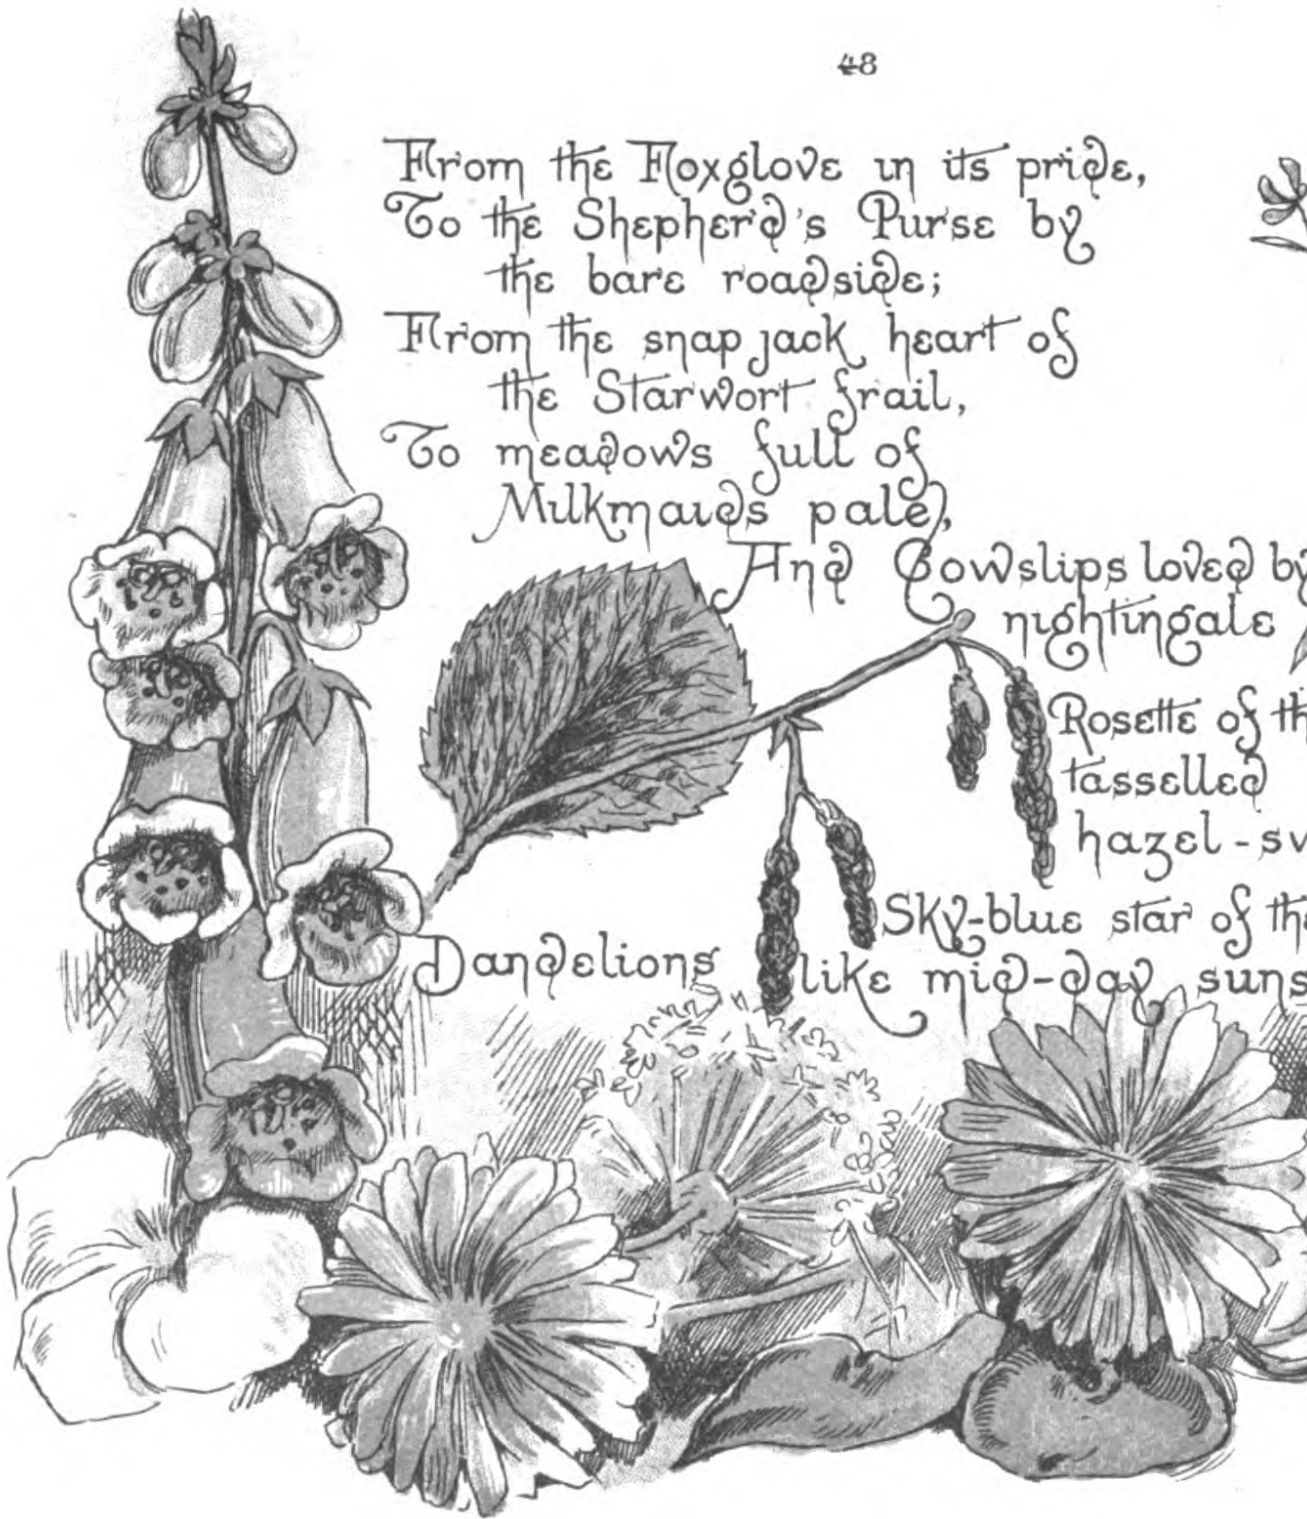 48
From the Foxglove in its pride,
To the Shepherd's Purse by
the bare roadside;
From the snap jack heart of
the Starwort frail,
To meadows full of
Milkmaids pale,
And Cowslips loved by
nightingale
Rosette of
tasselled
hazel-
Sky-blue star of
Dandelions like mid-day suns